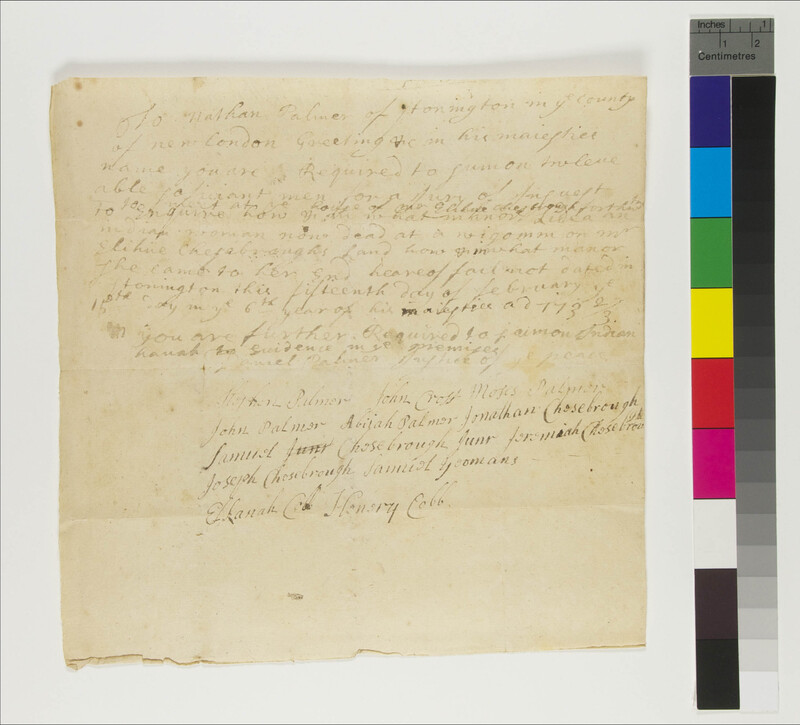 To Nathan Palmer of Stonington in ye County
of new London Greeting &c in his maiesties
name you are Required to sumon twleve
able soficiant men for a Jury of Inquest
to meet at ye house of mr Elihue forthwith
to Enquire how & in what manor an
Indian woman now dead at a wigomm on mr
Elihue Chesebroughs Land how & in what manor
she came to her End heareof fail not dated in
Stonington this fifteenth day of february ye
15th day in ye 6th year of his maiestice ad 173 2/3
you are further Required to sumon Indian
hanah to evidence in ye premises
Daniel Palmer Justice of ye peace
Nathan Palmer John Cross Moses Palmer
John Palmer Abijah Palmer Jonathan Chesebrough
Samuel Junr Chesebrough Junr Jeremiah Chesebrough
Joseph Chosebrough Samuel Yoomans
Elkanah Cobb Henery Cobb
Inches 1
1 2
Centimetres